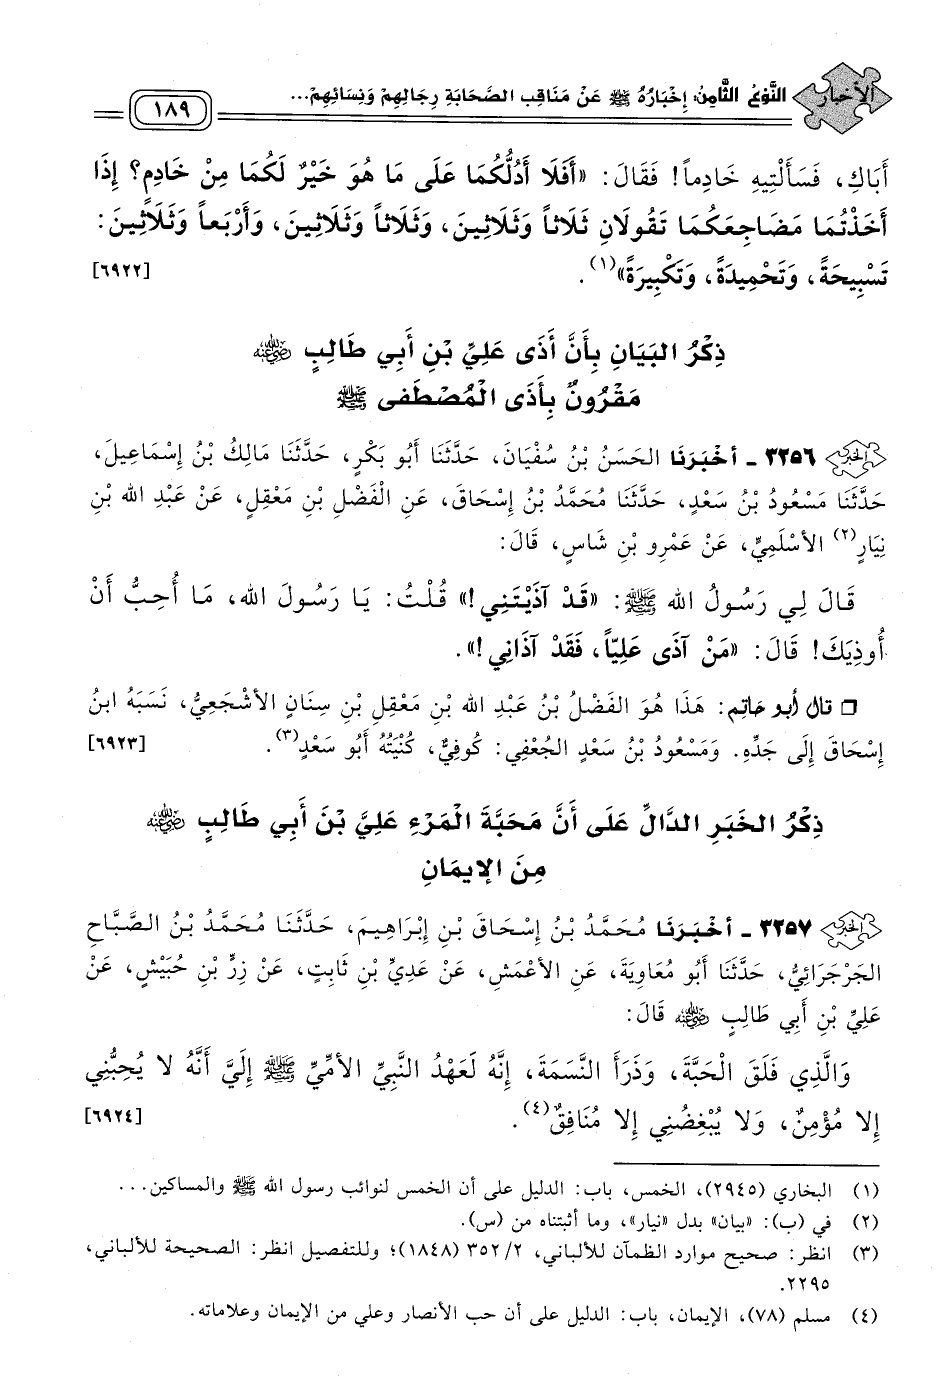 الأخبار
النَّوْعُ الثَّامِنُ: إِخْبَارُهُ ﷺ عَنْ مَنَاقِبِ الصَّحَابَةِ رِجَالِهِمْ وَنِسَائِهِمْ...
١٨٩
أَبَاكِ، فَسَأَلْتِيهِ خَادِماً! فَقَالَ: «أَفَلَا أَدُلُّكُمَا عَلَى مَا هُوَ خَيْرٌ لَكُمَا مِنْ خَادِمٍ؟ إِذَا
أَخَذْتُمَا مَضَاجِعَكُمَا تَقُولَانِ ثَلَاثاً وَثَلَاثِينَ، وَثَلَاثاً وَثَلَاثِينَ، وَأَرْبَعاً وَثَلَاثِينَ:
تَسْبِيحَةً، وَتَحْمِيدَةً، وَتَكْبِيرَةً»(١). [٦٩٢٢]
ذِكْرُ البَيَانِ بِأَنَّ أَذَى عَلِيِّ بْنِ أَبِي طَالِبٍ رضي الله عنه
مَقْرُونٌ بِأَذَى الْمُصْطَفَى ﷺ
الخبر ٣٢٥٦ - أَخْبَرَنَا الحَسَنُ بْنُ سُفْيَانَ، حَدَّثَنَا أَبُو بَكْرٍ، حَدَّثَنَا مَالِكُ بْنُ إِسْمَاعِيلَ،
حَدَّثَنَا مَسْعُودُ بْنُ سَعْدٍ، حَدَّثَنَا مُحَمَّدُ بْنُ إِسْحَاقَ، عَنِ الْفَضْلِ بْنِ مَعْقِلٍ، عَنْ عَبْدِ الله بْنِ
نِيَارٍ(٢) الأَسْلَمِيِّ، عَنْ عَمْرِو بْنِ شَاسٍ، قَالَ:
قَالَ لِي رَسُولُ الله ﷺ: «قَدْ آذَيْتَنِي!» قُلْتُ: يَا رَسُولَ الله، مَا أُحِبُّ أَنْ
أُوذِيَكَ! قَالَ: «مَنْ آذَى عَلِيّاً، فَقَدْ آذَانِي!».
❏ قال أبو حاتم: هَذَا هُوَ الفَضْلُ بْنُ عَبْدِ الله بْنِ مَعْقِلِ بْنِ سِنَانٍ الأَشْجَعِيُّ، نَسَبَهُ ابنُ
إِسْحَاقَ إِلَى جَدِّهِ. وَمَسْعُودُ بْنُ سَعْدٍ الجُعْفِي: كُوفِيٌّ، كُنْيَتُهُ أَبُو سَعْدٍ(٣). [٦٩٢٣]
ذِكْرُ الخَبَرِ الدَّالِّ عَلَى أَنَّ مَحَبَّةَ الْمَرْءِ عَلِيَّ بْنَ أَبِي طَالِبٍ رضي الله عنه
مِنَ الإِيمَانِ
الخبر ٣٢٥٧ - أَخْبَرَنَا مُحَمَّدُ بْنُ إِسْحَاقَ بْنِ إِبْرَاهِيمَ، حَدَّثَنَا مُحَمَّدُ بْنُ الصَّبَّاحِ
الجَرْجَرَائِيُّ، حَدَّثَنَا أَبُو مُعَاوِيَةَ، عَنِ الأَعْمَشِ، عَنْ عَدِيِّ بْنِ ثَابِتٍ، عَنْ زِرِّ بْنِ حُبَيْشٍ، عَنْ
عَلِيِّ بْنِ أَبِي طَالِبٍ رضي الله عنه قَالَ:
وَالَّذِي فَلَقَ الْحَبَّةَ، وَذَرَأَ النَّسَمَةَ، إِنَّهُ لَعَهْدُ النَّبِيِّ الأُمِّيِّ ﷺ إِلَيَّ أَنَّهُ لا يُحِبُّنِي
إِلا مُؤْمِنٌ، وَلا يُبْغِضُنِي إِلا مُنَافِقٌ(٤). [٦٩٢٤]
(١) البخاري (٢٩٤٥)، الخمس، باب: الدليل على أن الخمس لنوائب رسول الله ﷺ والمساكين...
(٢) في (ب): «بيان» بدل «نيار»، وما أثبتناه من (س).
(٣) انظر: صحيح موارد الظمآن للألباني، ٣٥٢/٢ (١٨٤٨)؛ وللتفصيل انظر: الصحيحة للألباني،
٢٢٩٥.
(٤) مسلم (٧٨)، الإيمان، باب: الدليل على أن حب الأنصار وعلي من الإيمان وعلاماته.